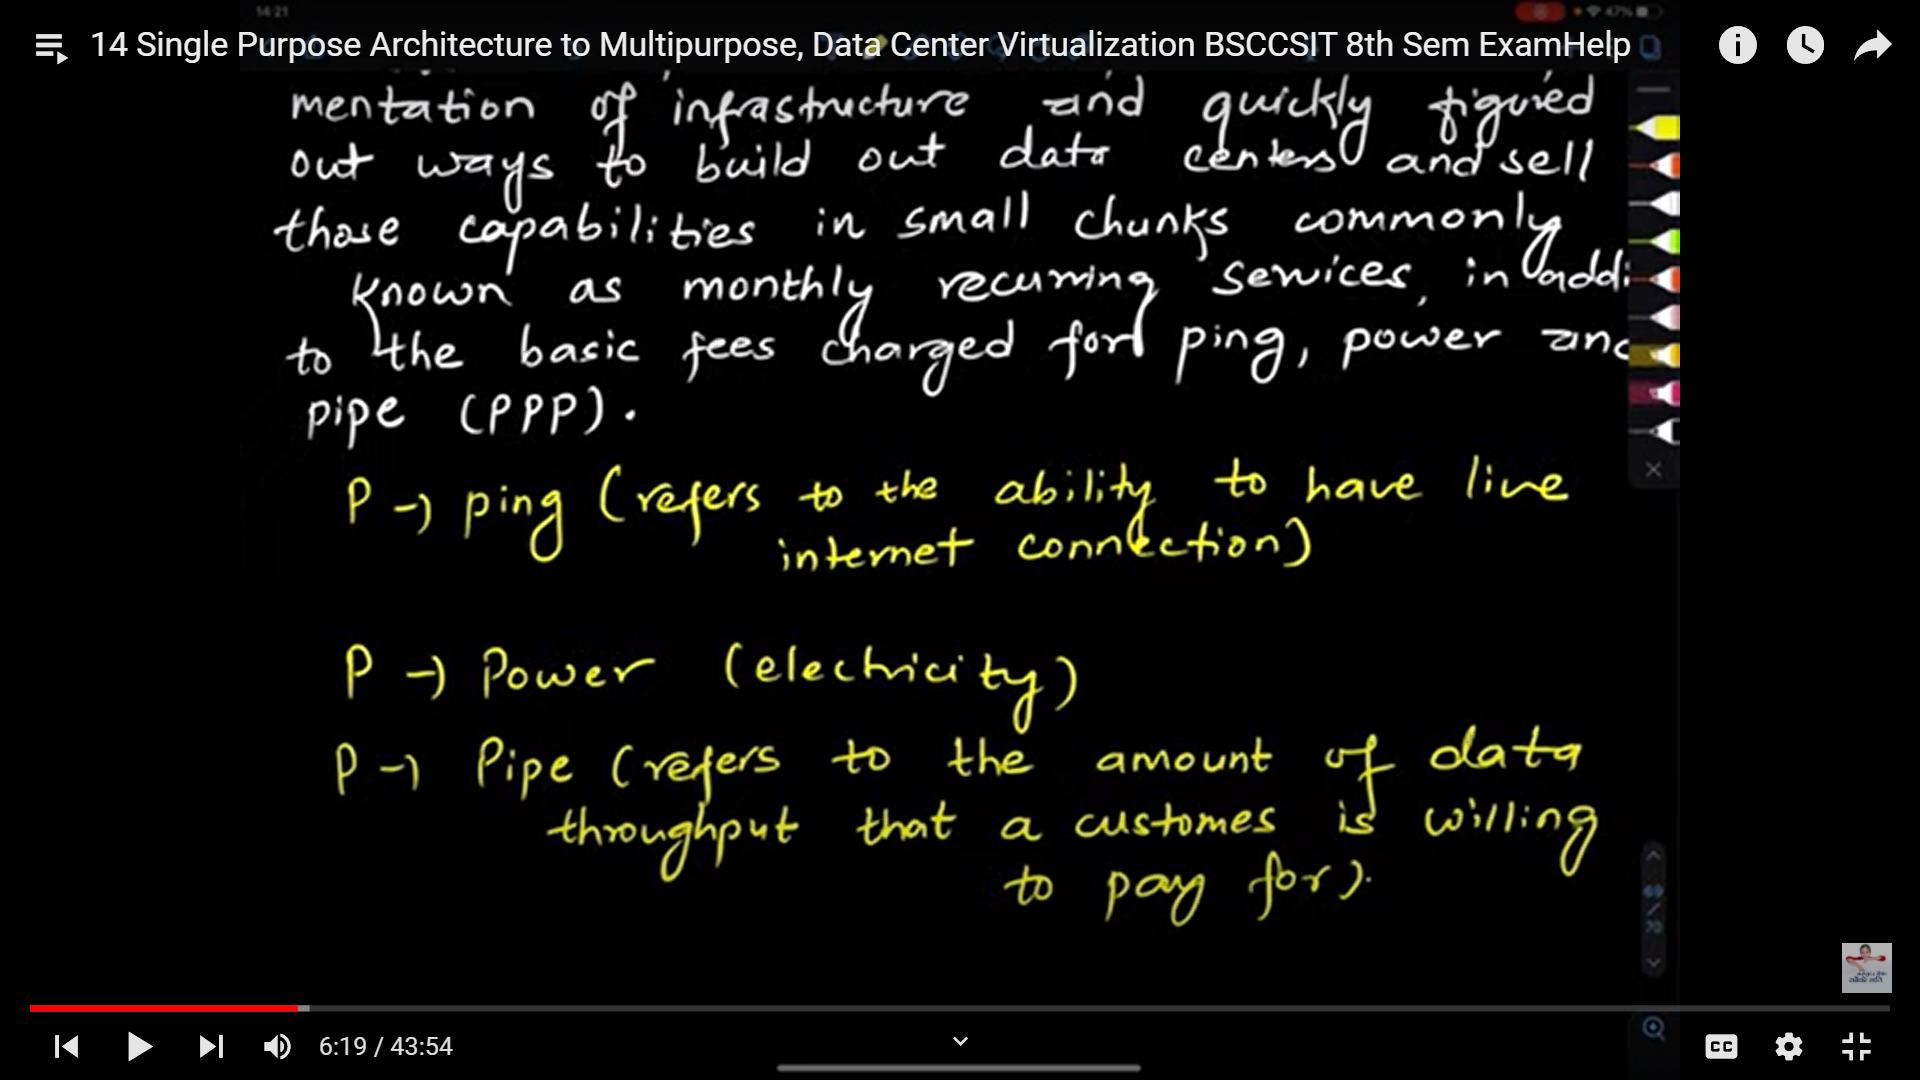 14:21
47%
14 Single Purpose Architecture to Multipurpose, Data Center Virtualization BSCCSIT 8th Sem ExamHelp
mentation of infrastructure and quickly figured
out ways to build out data centers and sell
those capabilities in small chunks commonly
known as monthly recurring services, in addi
to the basic fees charged for ping, power and
pipe (PPP).
P → ping (refers to the ability to have live
internet connection)
P → Power (electricity)
P → Pipe (refers to the amount of data
throughput that a customer is willing
to pay for).
69
/
70
6:19 / 43:54
CC